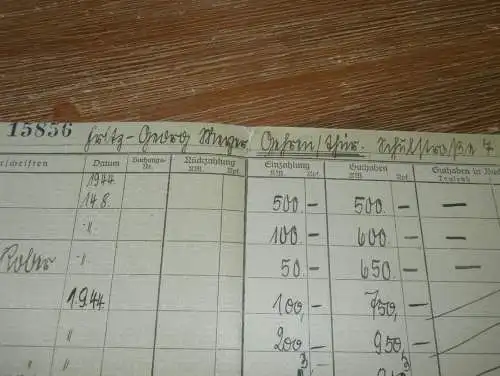 15856 Fritz-Georg Meyer, Gehren/Thür. Schulstraße 7
Datum Buchungs-Nr. Rückzahlung RM. Rpf. Einzahlung RM. Rpf. Guthaben RM. Rpf. Guthaben in
1944
14.8. 500.- 500.- -
-"- 100.- 600.- -
-"- 50.- 650.- -
1.9.44. 100,- 750,-
" 200.- 950.-
"